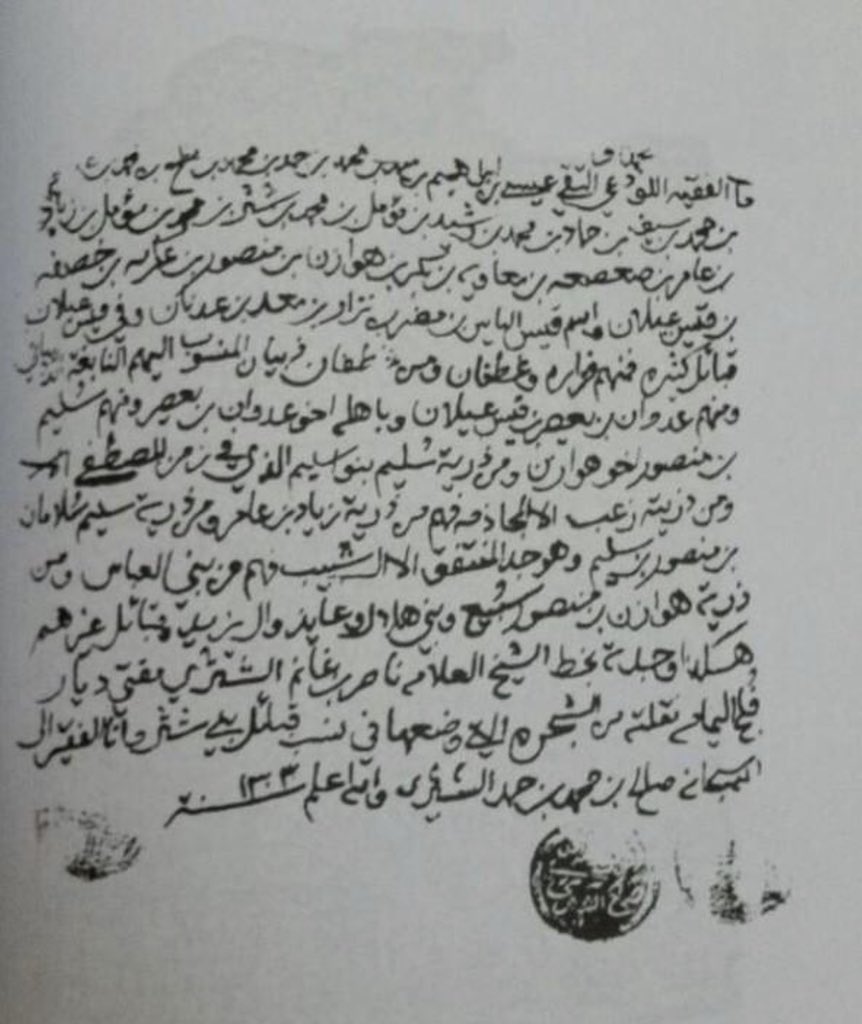 الفقيه اللوذعي التقي عيسى بن ابراهيم بن محمد بن حمد بن محمد بن
بن محمد بن سيف بن حماد بن محمد بن رشيد بن مؤمل بن محمد بن شثر بن محمد بن مؤمل بن زياد
بن عامر بن صعصعه بن معاويه بن بكر بن هوازن بن منصور بن عكرمه بن خصفه
بن قيس عيلان واسم قيس الياس بن مضر بن نزار بن معد بن عدنان وفي قيس عيلان
قبائل كثيره فمنهم فزاره وغطفان ومن غطفان ذبيان المنسوب اليهم النابغه
ومنهم عدوان بن يعصر بن قيس عيلان وباهله اخو عدوان بن يعصر ومنهم سليم
بن منصور اخو هوازن ومن ذرية سليم بنو سليم الذي في زمن المصطفى
ومن ذريته زعب الا فهم من ذرية زياد بن عامر ومن ذرية سليم سلامان
بن منصور بن سليم وهو جد المنتفق الا ال شبيب فهم من بني العباس ومن
ذرية هوازن بن منصور سبيع وبني هلال وعايذ وال يزيد وقبائل غيرهم
هكذا وجدته بخط الشيخ العلامه ناصر بن غانم الشثري مفتي ديار
اليمامه نقلته من الشجره التي وضعها في نسب قبيلتي شثر وانا الفقير الى
صالح بن محمد بن حمد الشثري والله اعلم سنة ١٣٠٣